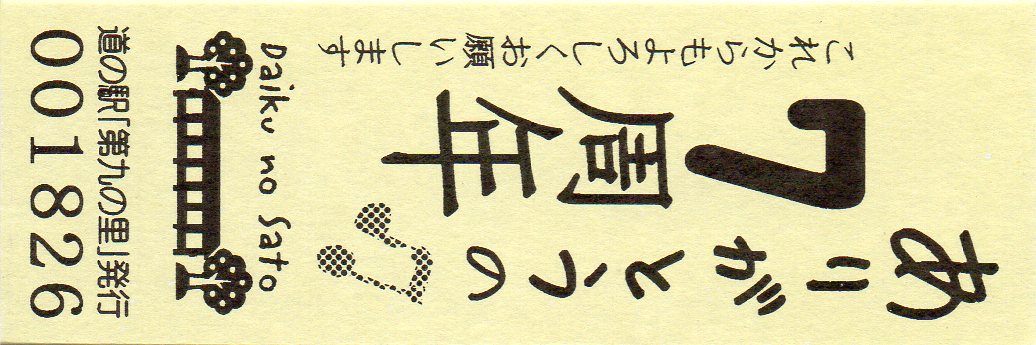 ありがとうの
7周年
これからもよろしくお願いします
Daiku no Sato
道の駅「第九の里」発行
001826